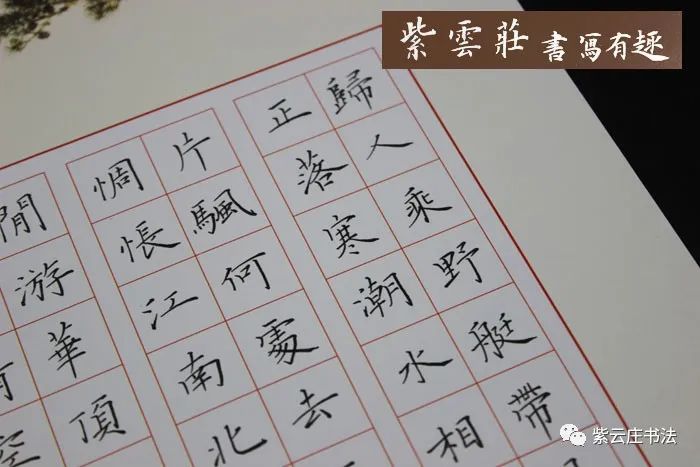 紫雲莊 書寫有趣
歸人乘野艇帶
正落寒潮水相
片颿何處去
惆悵江南北
閒游華頂
紫云庄书法